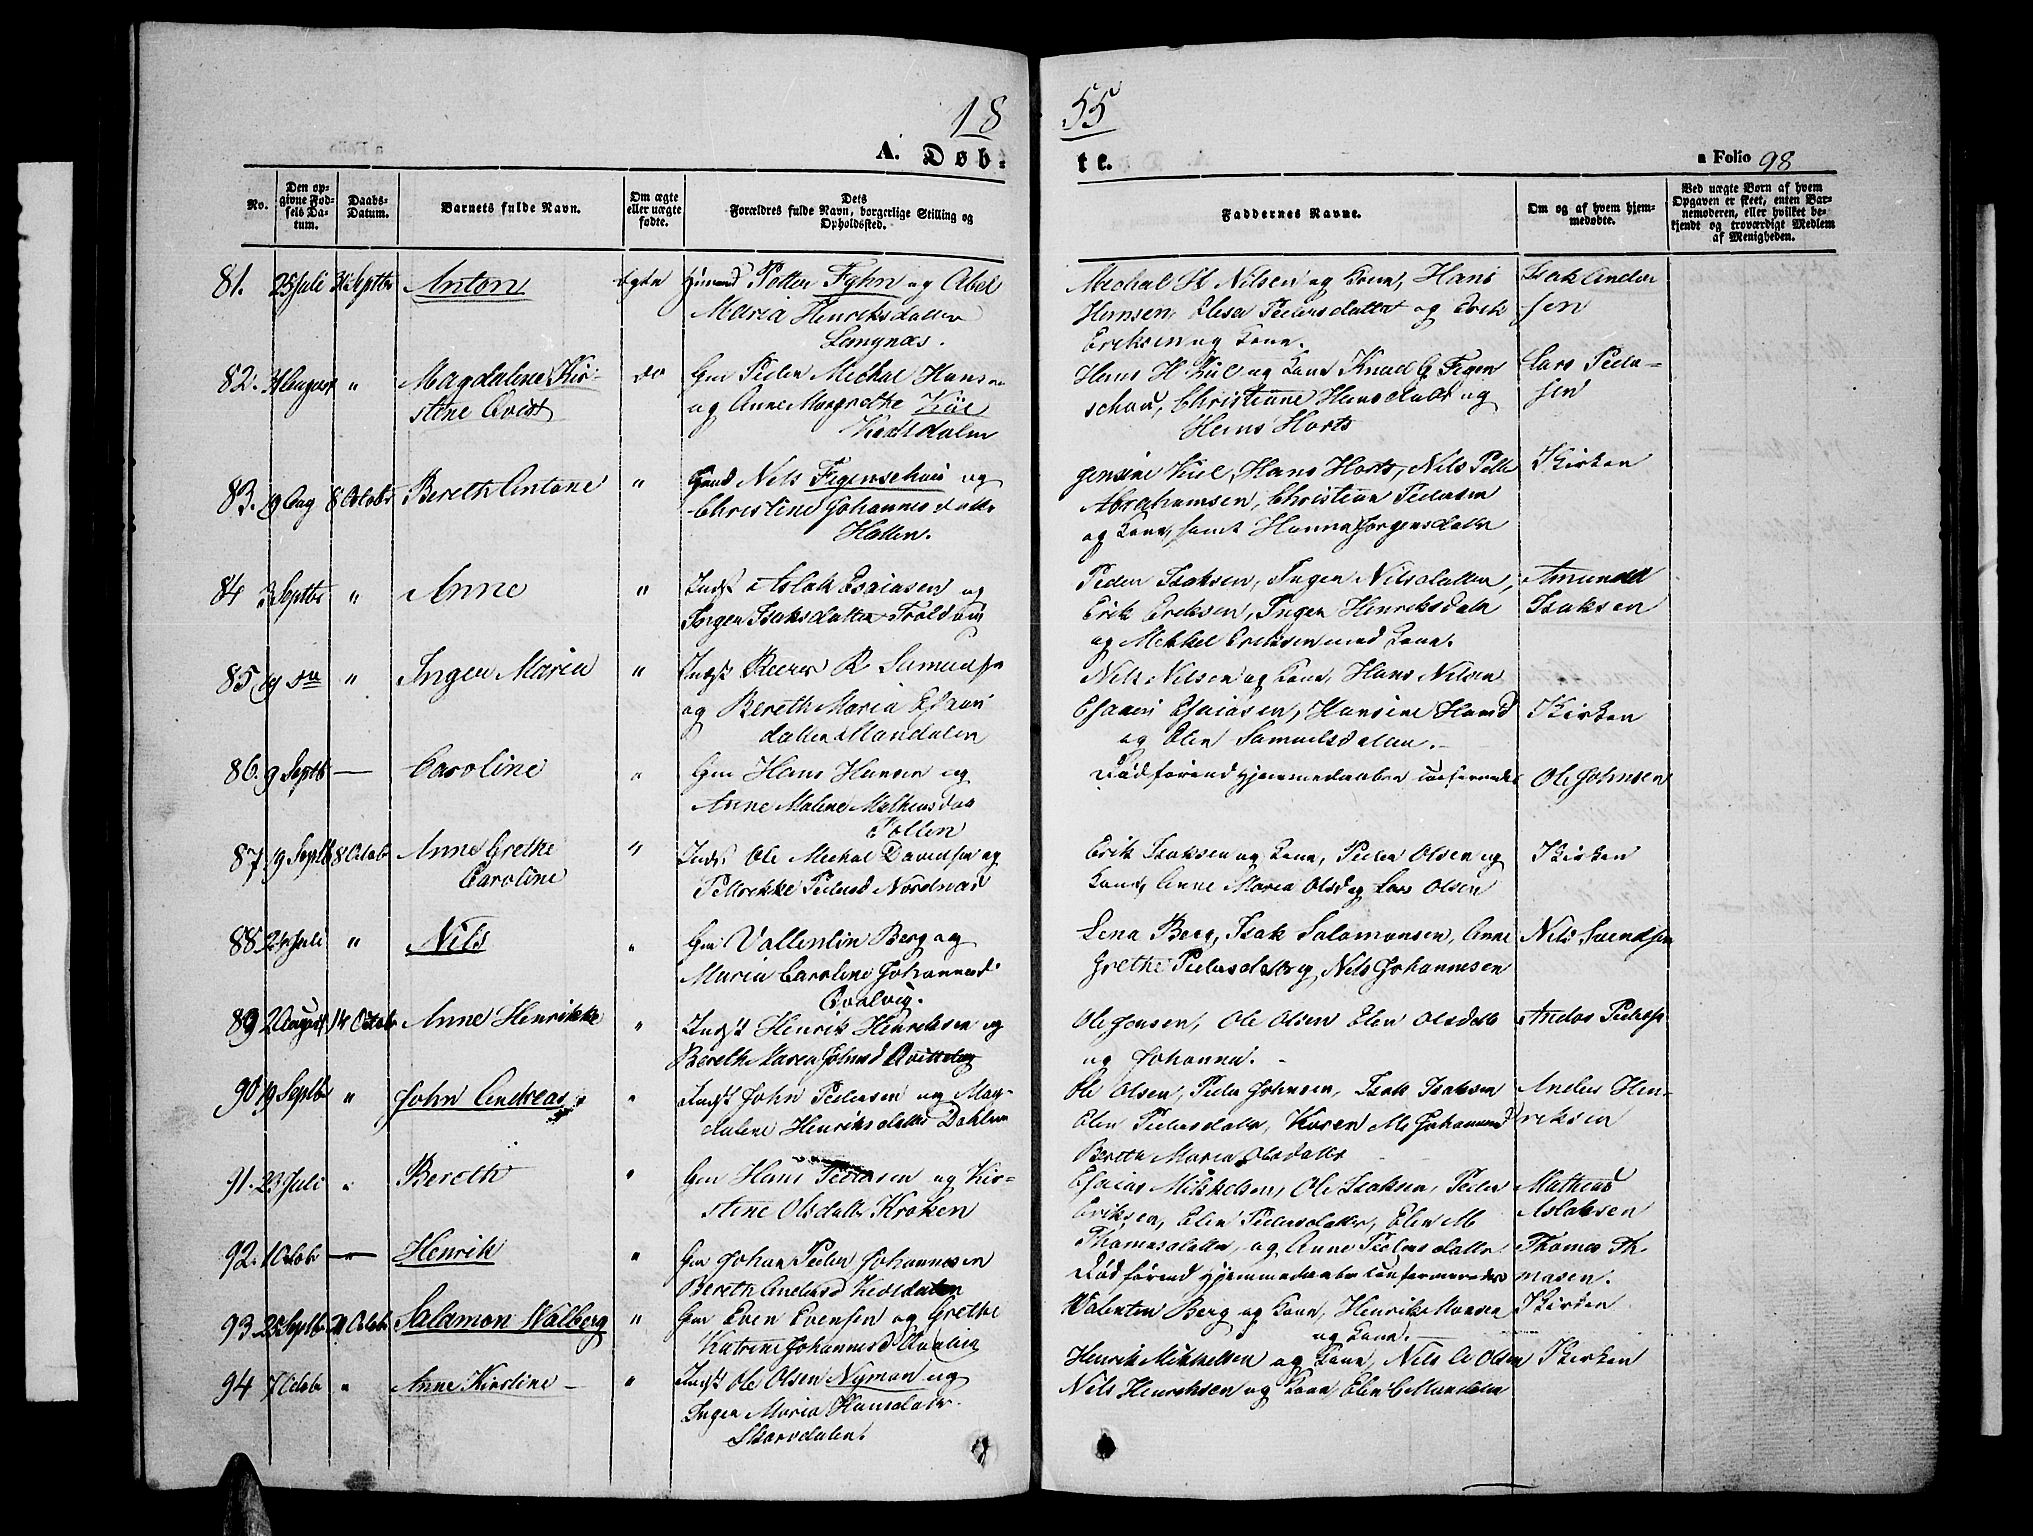 18 55
A. Døb- te.
a Folio 98
No.
Den op-
givne Fød-
sels Da-
tum.
Daabs-
Datum.
Barnets fulde Navn.
Om ægte
eller uægte
fødte.
Dets
Forældres fulde Navn, borgerlige Stilling og
Opholdssted.
Faddernes Navne.
Om og af hvem hjem-
medøbte.
Ved uægte Børn af hvem
Opgaven er skeet, enten Bar-
nemoderen, eller hvilket be-
kjendt og troværdigt Medlem
af Menigheden.
81. 25 Juli Septbr Anton Petter Fyhn og Abel
Maria Henriksdatter
Langnæs.
Mechal H Nilsen og Kone, Hans
Hansen, Elisa Pedersdatter og Erik
Eriksen og Kone.
Isak Ander
sen
82. August " Magdalene Kir-
stine Qvist
do
Gm Peder Mechal Hansen
og Anne Margrethe Kiil
Kidsdalen
Hans H Kiil og Kone Knud G Figen
schou, Christianne Hansdatt og
Hans Horts
Lars Peder-
sen
83. 19 Aug 8 Octobr Bereth Antone "
Nils Figenschou og
Christine Johannesdatter
Hatten.
Jensine Kiil, Hans Horts, Nils Peter
Abrahamsen, Christian Pedersen
og Kone, samt Hanna Jørgensdatter
Kirken
84 3 Septbr " Anne "
Indst Aslak Esaiasen og
Inger Isaksdatter Troldvig
Peder Isaksen, Inger Nilsdatter,
Erik Eriksen, Inger Henriksdatter
og Mekkel Eriksen med Kone.
Amund
Isaksen
85 19 " Inger Maria "
Indst R. Samuelsen
og Bereth Maria Esaias
datter Mandalen
Nils Nilsen og Kone, Hans Nilsen
Esaias Esaiasen, Hansine Hansd
og Elen Samuelsdatter.
Kirken
86. 9 Septb — Caroline "
Gm Hans Hansen og
Anne Malene Mathiasdatter
Dødførend hjemmedaaben confirmeredes
Ole Johnsen
87. 19 Septb 8 Octob Anne Grethe
Caroline
"
Indst Ole Mechal Davidsen og
Pedersd Nordnæs
Erik Isaksen og Kone, Peder Olsen og
Kone, Anne Maria Olsd og Lars Olsen
Kirken
88 24 Juli " Nils "
Gm Vallentin Berg og
Maria Caroline Johannesd
Qvalvig.
Lena Berg, Isak Salamonsen, Anne
Grethe Pedersdatter og Nils Johannesen
Nils Svendsen
89 2 August 14 Octobr Anne Henrikke "
Indst Henrik Henriksen og
Bereth Maria Johnsd
Ole Jensen, Ole Olsen Elen Olsdatt
og Johanna.
Andas Pedersen
90 19 Septbr " John Andreas "
Indst John Pedersen og Mag-
dalene Henriksdatter Dahlen
Ole Olsen, Peder Johnsen, Isak Isaksen
Elen Pedersdatter, Karen M Johannesd
Bereth Maria Olsdatter
Andas Hen-
riksen
91. 23 Juli " Bereth "
Gm Hans Pedersen og Kir-
stine Olsdatter Kroken
Esaias Mikkelsen, Ole Isaksen, Peder
Eriksen, Elen Pedersdatter, Elen M
Thomasdatter og Anne Pedersdatter
Mathias
Aslaksen
92. 1 Octob — Henrik "
Gm Johan Peder Johannesen
Bereth Andersd Kidsdalen
Dødførend hjemmedaaben confirmeredes
Thomas Th
masen.
93 25 Septbr 21 Octobr Salamon Walberg "
Gm Even Evensen og Grethe
Katrine Johannesd Qvalvig
Valentin Berg og Kone, Henrik Monsen
og Kone.
Kirken
94 7 Octob " Anne Kirstine "
Indst Ole Olsen Nyman og
Inger Maria Hansdatter
Skarvdalen.
Henrik Mikkelsen og Kone, Nils A Olsen
Nils Henriksen og Kone Elen C Mandalen
Kirken